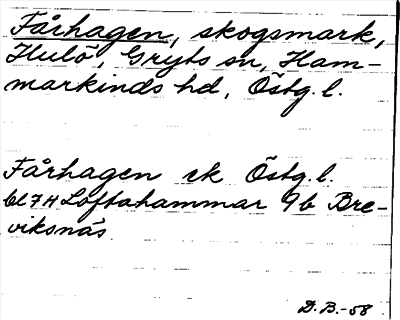 Fårhagen, skogsmark,
Hulö, Gryts sn, Ham-
markinds hd, Östg. l.
Fårhagen ek Östg. l.
bl 7H Loftahammar 9b Bre-
viksnäs
D. B.-58